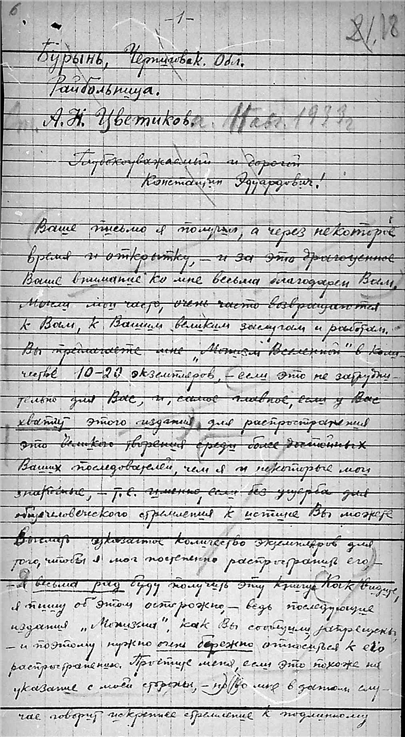 6
-1-
21.18
Бурынь, Черниговск. Обл.
Райбольница.
А.Н. Цветикова. 11 авг. 1933 г
Глубокоуважаемый и дорогой
Константин Эдуардович!
Ваше письмо я получил, а через некоторое
время и открытку, – и за это драгоценное
Ваше внимание ко мне весьма благодарен Вам.
Мысли мои часто, очень часто возвращаются
к Вам, к Вашим великим заслугам и работам.
Вы предлагаете мне „Монизм Вселенной" в коли-
честве 10-20 экземпляров, – если это не затрудни-
тельно для Вас, и, самое главное, если у Вас
хватит этого издания для распространения
это великого творения среди более достойных
Ваших последователей, чем я и некоторые мои
знакомые, – т.е. именно, если без ущерба для
общечеловеческого стремления к истине Вы можете
выслать указанное количество экземпляров для
того, чтобы я мог постепенно распространить его –
– я весьма рад буду получить эту книгу. Как видите,
я пишу об этом осторожно – ведь последующие
издания „Монизма", как Вы сообщили, запрещены,
– и поэтому нужно очень бережно относиться к его
распространению. Простите меня, если это похоже на
указание с моей стороны, – но во мне в данном слу-
чае говорит искреннее стремление к подлинному